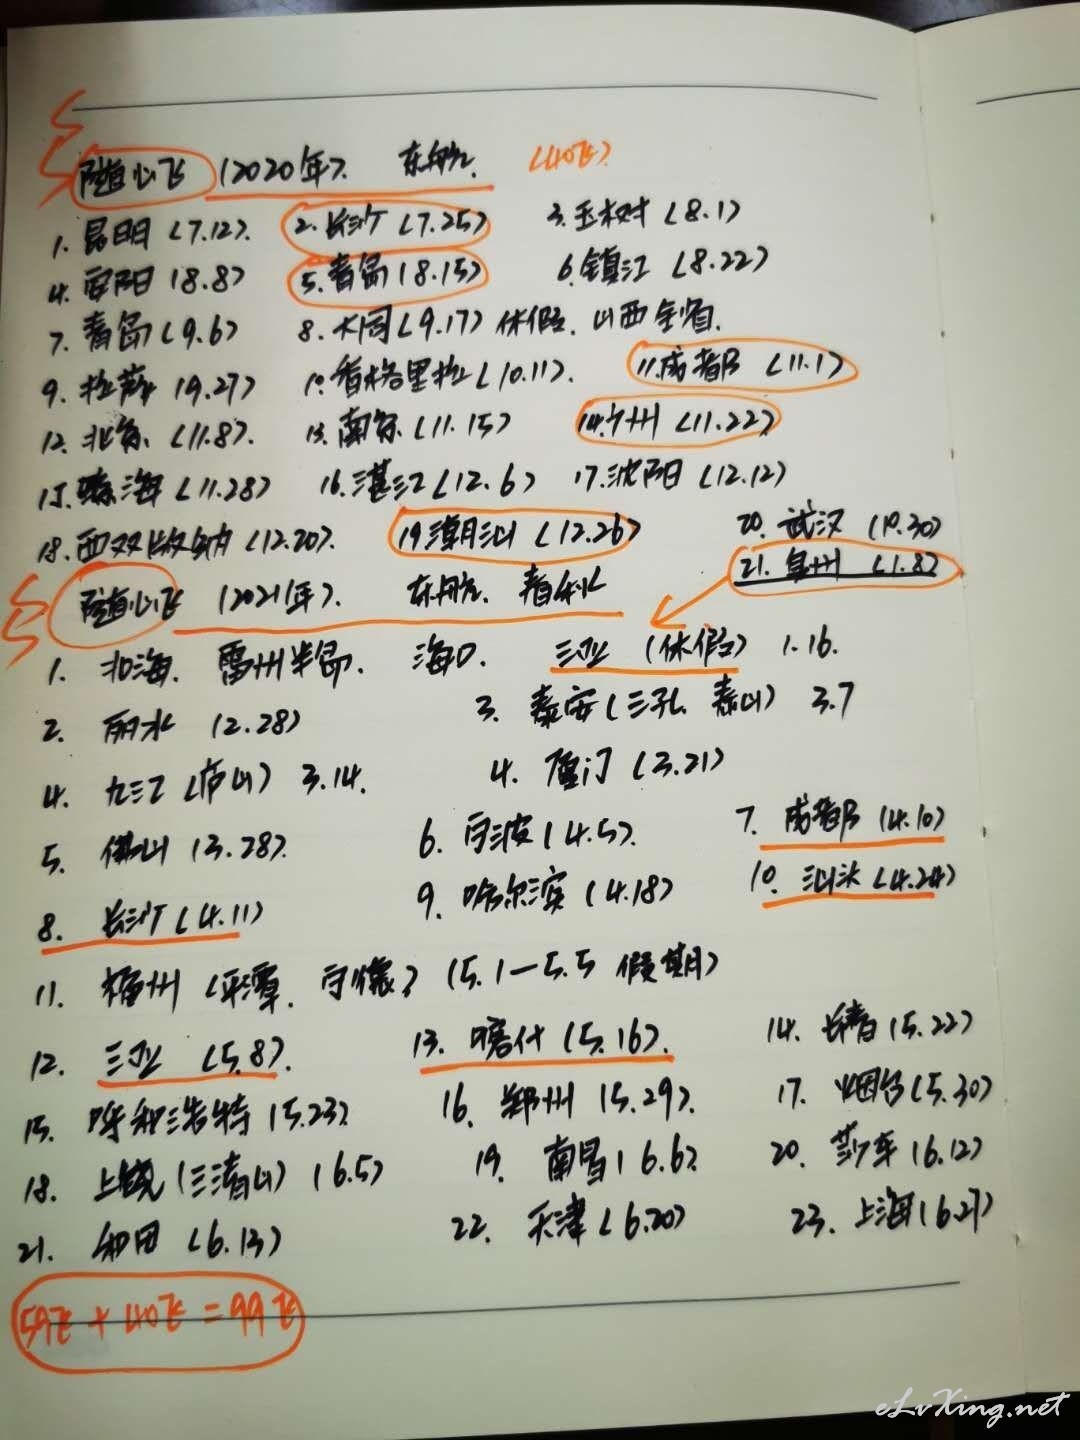 随心飞 (2020年). 东航. (40飞)
1. 昆明 (7.12). 2. 长沙 (7.25) 3. 玉树 (8.1)
4. 安阳 (8.8) 5. 青岛 (8.15) 6. 镇江 (8.22)
7. 青岛 (9.6) 8. 大同 (9.17) 休假. 山西全省.
9. 拉萨 (9.27) 10. 香格里拉 (10.11). 11. 成都 (11.1)
12. 北京 (11.8). 13. 南京 (11.15) 14. 广州 (11.22)
15. 珠海 (11.28) 16. 湛江 (12.6) 17. 沈阳 (12.12)
18. 西双版纳 (12.20). 19. 潮汕 (12.26) 20. 武汉
21. 泉州 (1.8)
随心飞 (2021年). 东航. 春秋
1. 北海. 雷州半岛. 海口. 三亚 (休假) 1.16.
2. 丽水 (2.28) 3. 泰安 (三孔. 泰山) 3.7
4. 九江 (庐山) 3.14. 4. 厦门 (3.21)
5. 佛山 (3.28). 6. 宁波 (4.5). 7. 成都 (4.10)
8. 长沙 (4.11) 9. 哈尔滨 (4.18) 10. 汕头 (4.24)
11. 福州 (平潭. 宁德) (5.1-5.5 假期)
12. 三亚 (5.8). 13. 喀什 (5.16). 14. 长春 (5.22)
15. 呼和浩特 (5.23) 16. 郑州 (5.29). 17. 烟台 (5.30)
18. 上饶 (三清山) (6.5) 19. 南昌 (6.6) 20. 莎车 (6.12)
21. 和田 (6.13) 22. 天津 (6.20) 23. 上海 (6.27)
59飞 + 40飞 = 99飞
eLvXing.net